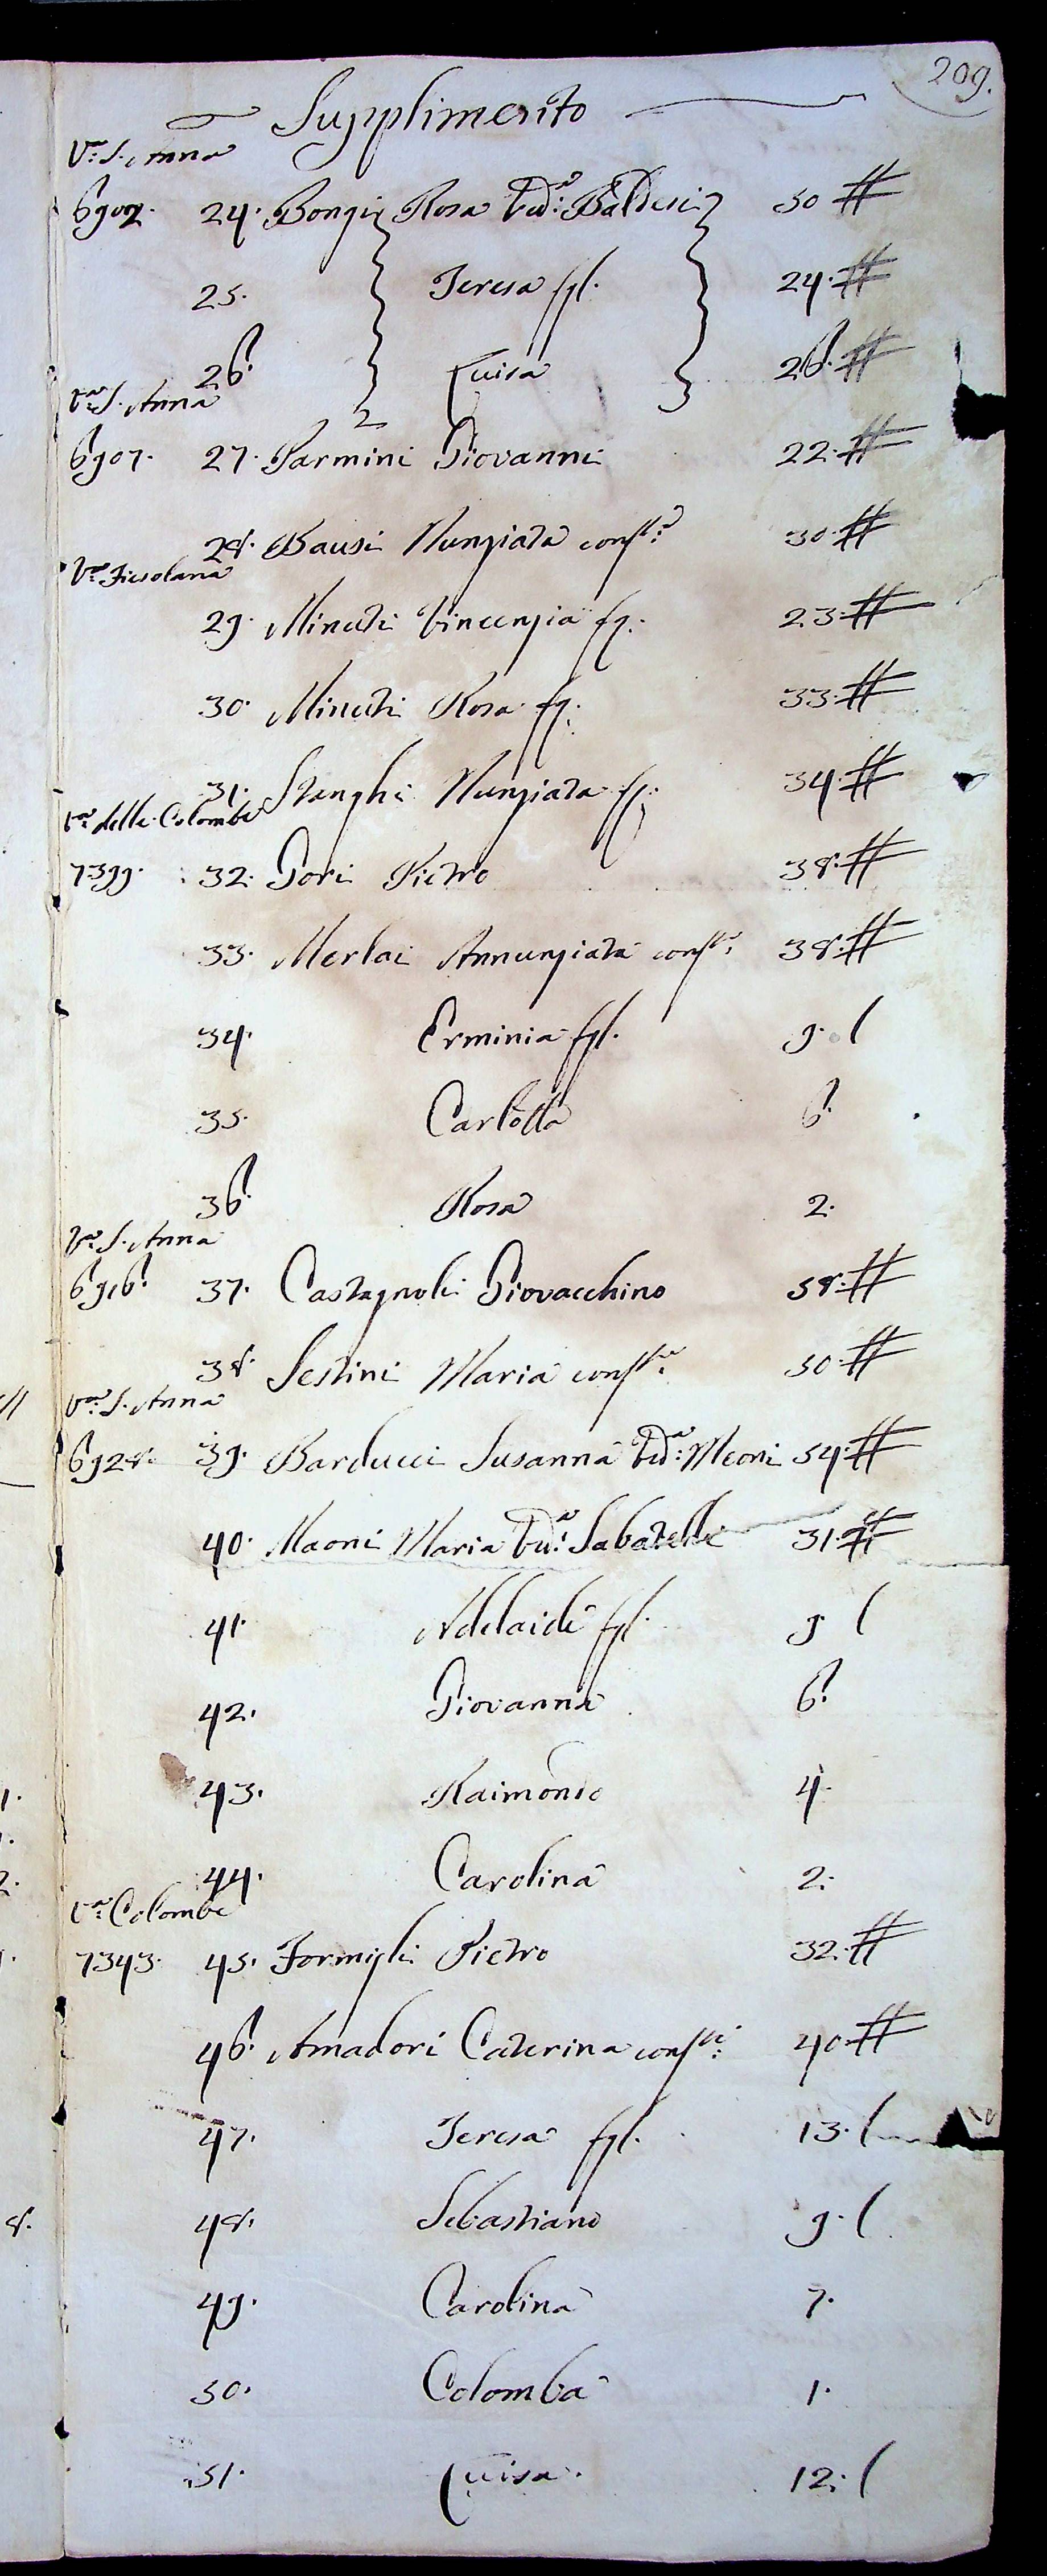 209.
Supplimento
V.ª S. Anna
6902. 24. Bongi Rosa Ved.ª Baldesi 50 #
25. Teresa fgl. 24. #
26. Luisa 26. #
V.ª S. Anna
6907. 27. Parmini Giovanni 22. #
28. Bausi Nunziata cons.ᵉ 30. #
V.ª Fiesolana
29. Minuti Vincenzia fg. 23. #
30. Minuti Rosa fg. 33. #
31. Stenghi Nunziata fg. 34. #
V.ª delle Colombe
7399. 32. Gori Pietro 38. #
33. Merlai Annunziata cons.ᵉ 38. #
34. Erminia fgl. 9. (
35. Carlotta 6.
36. Rosa 2.
V.ª S. Anna
6916. 37. Castagnoli Giovacchino 58. #
38. Sestini Maria cons.ᵉ 50. #
V.ª S. Anna
6928. 39. Barducci Susanna Ved.ª Meoni 54. #
40. Maoni Maria Ved.ª Sabatelli 31. #
41. Adelaide fgl. 9. (
42. Giovanna 6.
43. Raimondo 4.
44. Carolina 2.
V.ª Colombe
7343. 45. Formigli Pietro 32. #
46. Amadori Caterina cons.ᵉ 40. #
47. Teresa fgl. 13. (
48. Sebastiano 9. (
49. Carolina 7.
50. Colomba 1.
51. Luisa. 12. (